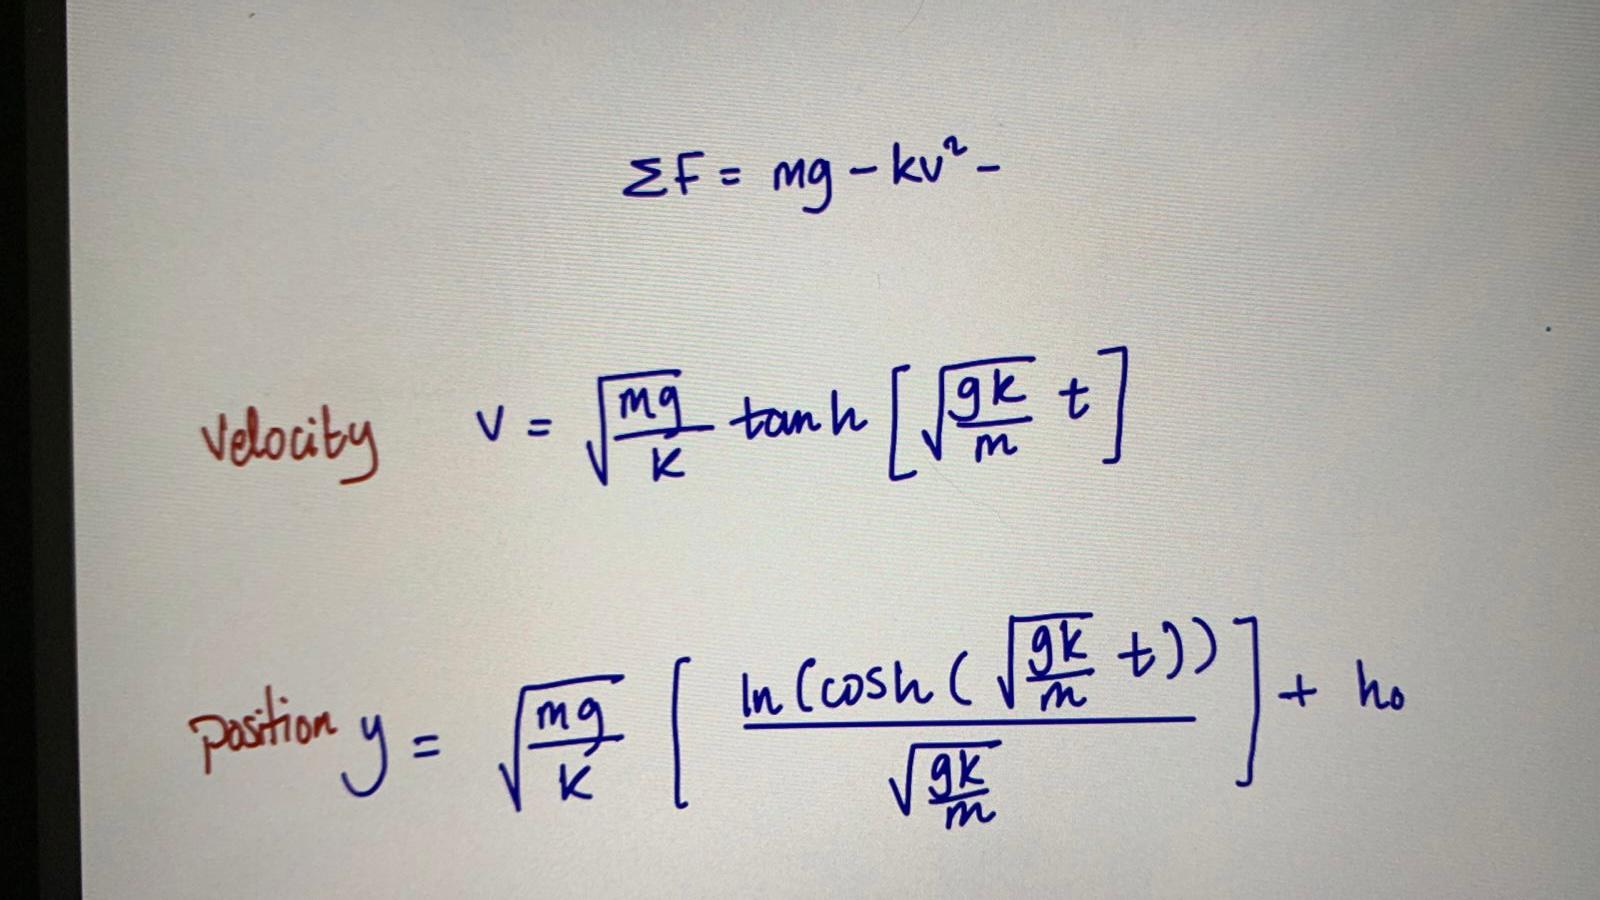 ΣF = mg - kv² -
velocity v = √(mg/k) tanh [√(gk/m) t]
position y = √(mg/k) [ln(cosh(√(gk/m) t)) / √(gk/m)] + h₀